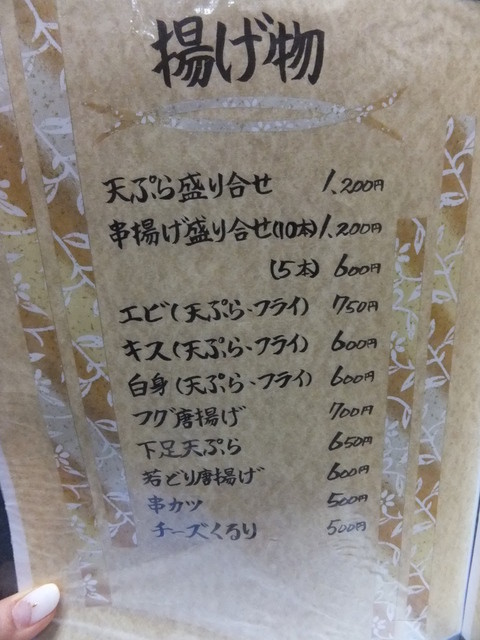 揚げ物
天ぷら盛り合せ 1,200円
串揚げ盛り合せ(10本) 1,200円
(5本) 600円
エビ(天ぷら、フライ) 750円
キス(天ぷら、フライ) 600円
白身(天ぷら、フライ) 600円
フグ唐揚げ 700円
下足天ぷら 650円
若どり唐揚げ 600円
串カツ 500円
チーズくるり 500円